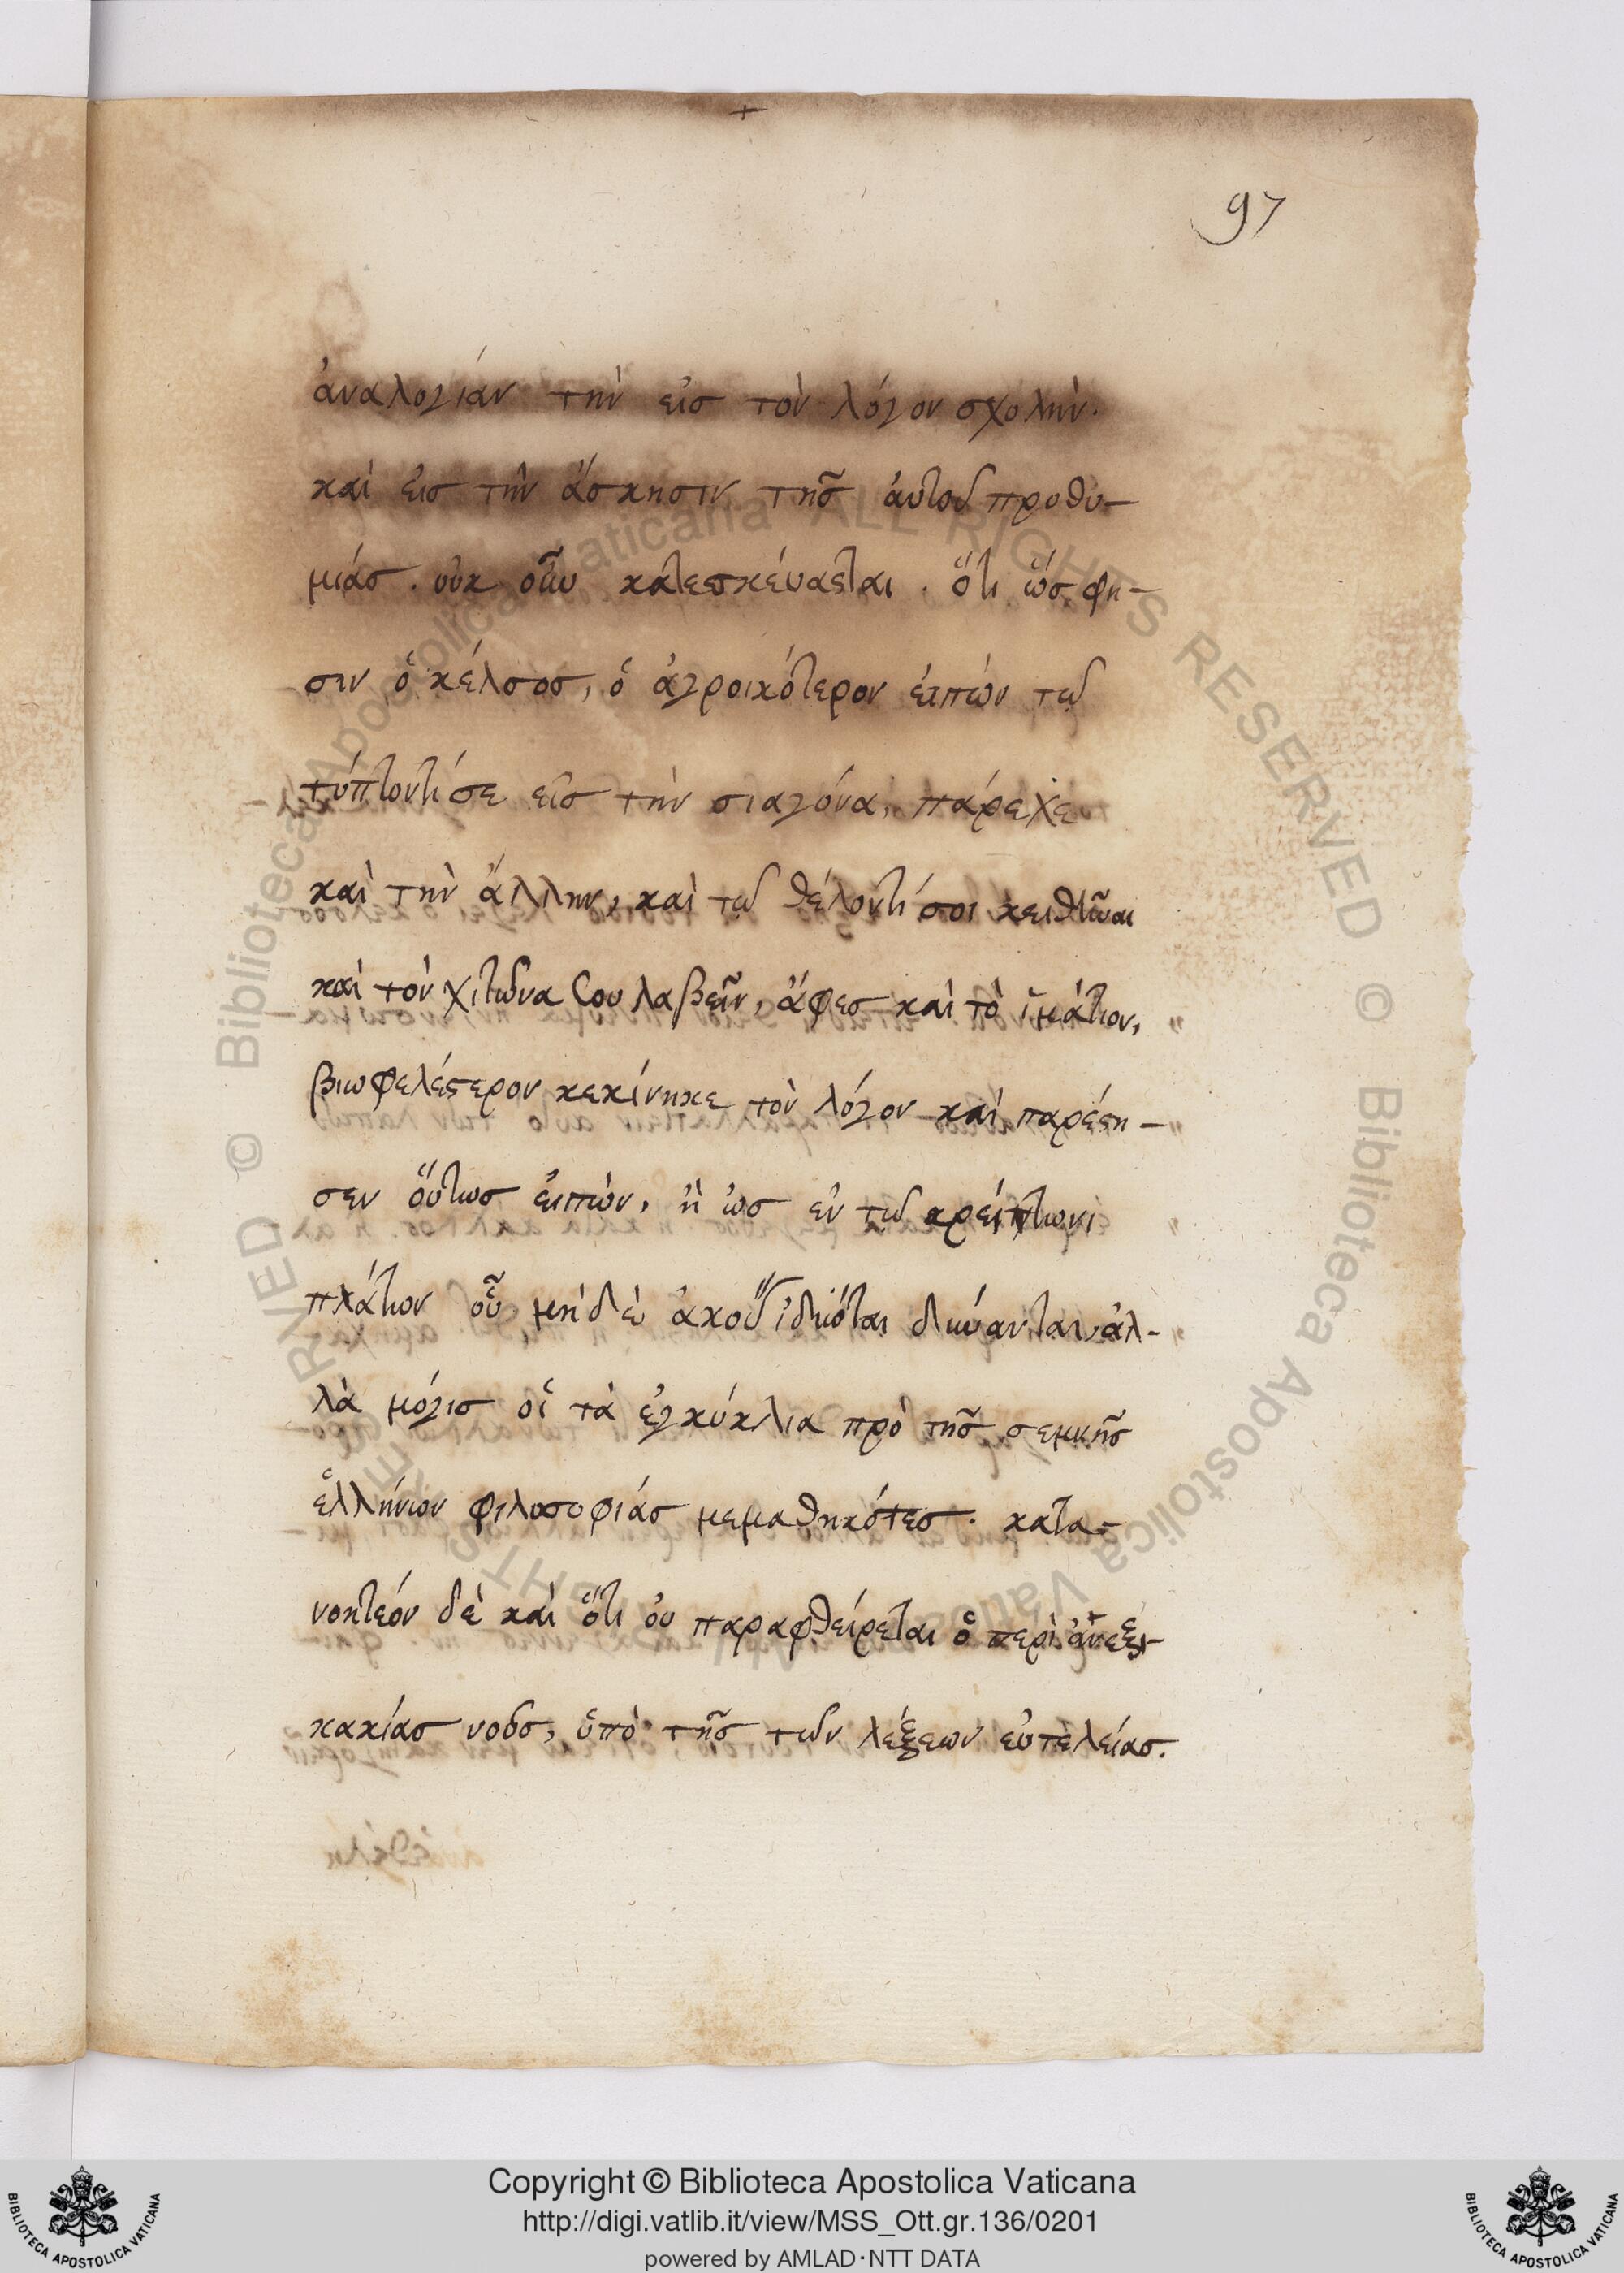 97
ἀναλογίαν τὴν εἰσ τὸν λόγον σχολὴν.
καὶ εἰσ τὴν ἄσκησιν τῆσ ἀυτοῦ προθυ-
μίασ. οὐκ οὖν κατεσκέυασται. ὅτι ὥσ φη-
σιν ὁ κέλσοσ, ὁ ἀγροικότερον ἐιπὼν τῶ
τύπτοντί σε εἰσ τὴν σιαγόνα, πάρεχε
καὶ τὴν ἄλλην, καὶ τῶ θέλοντί σοι κριθῆναι
καὶ τὸν χιτῶνα σου λαβεῖν, ἄφεσ καὶ τὸ ἱμάτιον,
βιωφελέστερον κεκίνηκε τὸν λόγον καὶ παρέστη-
σεν ὅυτωσ ἐιπὼν, ἢ ὡσ ἐν τῶ κρείττωνι
πλάτων οὗ μηδὲ ἰδιώται δύνανται, ἀλ-
λὰ μόγισ οἱ τὰ ἐγκύκλια πρὸ τῆσ σεμνῆσ
ἑλλήνων φιλοσοφίασ μεμαθηκότεσ. κατα-
νοητέον δὲ καὶ ὅτι ὀυ παραφθείρεται ὁ περὶ ἀνεξι-
κακίασ νοῦσ, ὑπὸ τῆσ τῶν λέξεων εὐτελείασ.
Copyright © Biblioteca Apostolica Vaticana
http://digi.vatlib.it/view/MSS_Ott.gr.136/0201
powered by AMLAD·NTT DATA
BIBLIOTECA APOSTOLICA VATICANA
BIBLIOTECA APOSTOLICA VATICANA